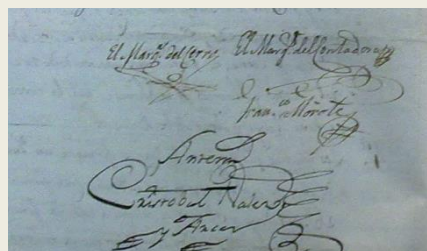 El Marq.s del Cerro El Marq.s del Contadero
Fran.co Morote
Antemi
Cristobal Valero
y Ancer